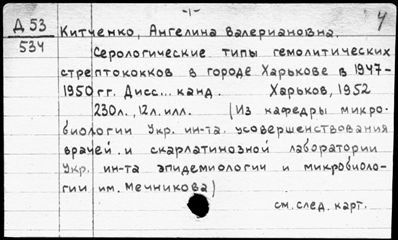 -1-
4
Д 53
534
Китченко, Ангелина Валериановна.
Серологические типы гемолитических
стрептококков в городе Харькове в 1947-
1950 гг. Дисс... канд. Харьков, 1952
230л., 12л. илл. (Из кафедры микро-
биологии Укр. ин-та. усовершенствования
врачей и скарлатинозной лаборатории
Укр. ин-та эпидемиологии и микробиоло-
гии им. Мечникова)
см. след. карт.